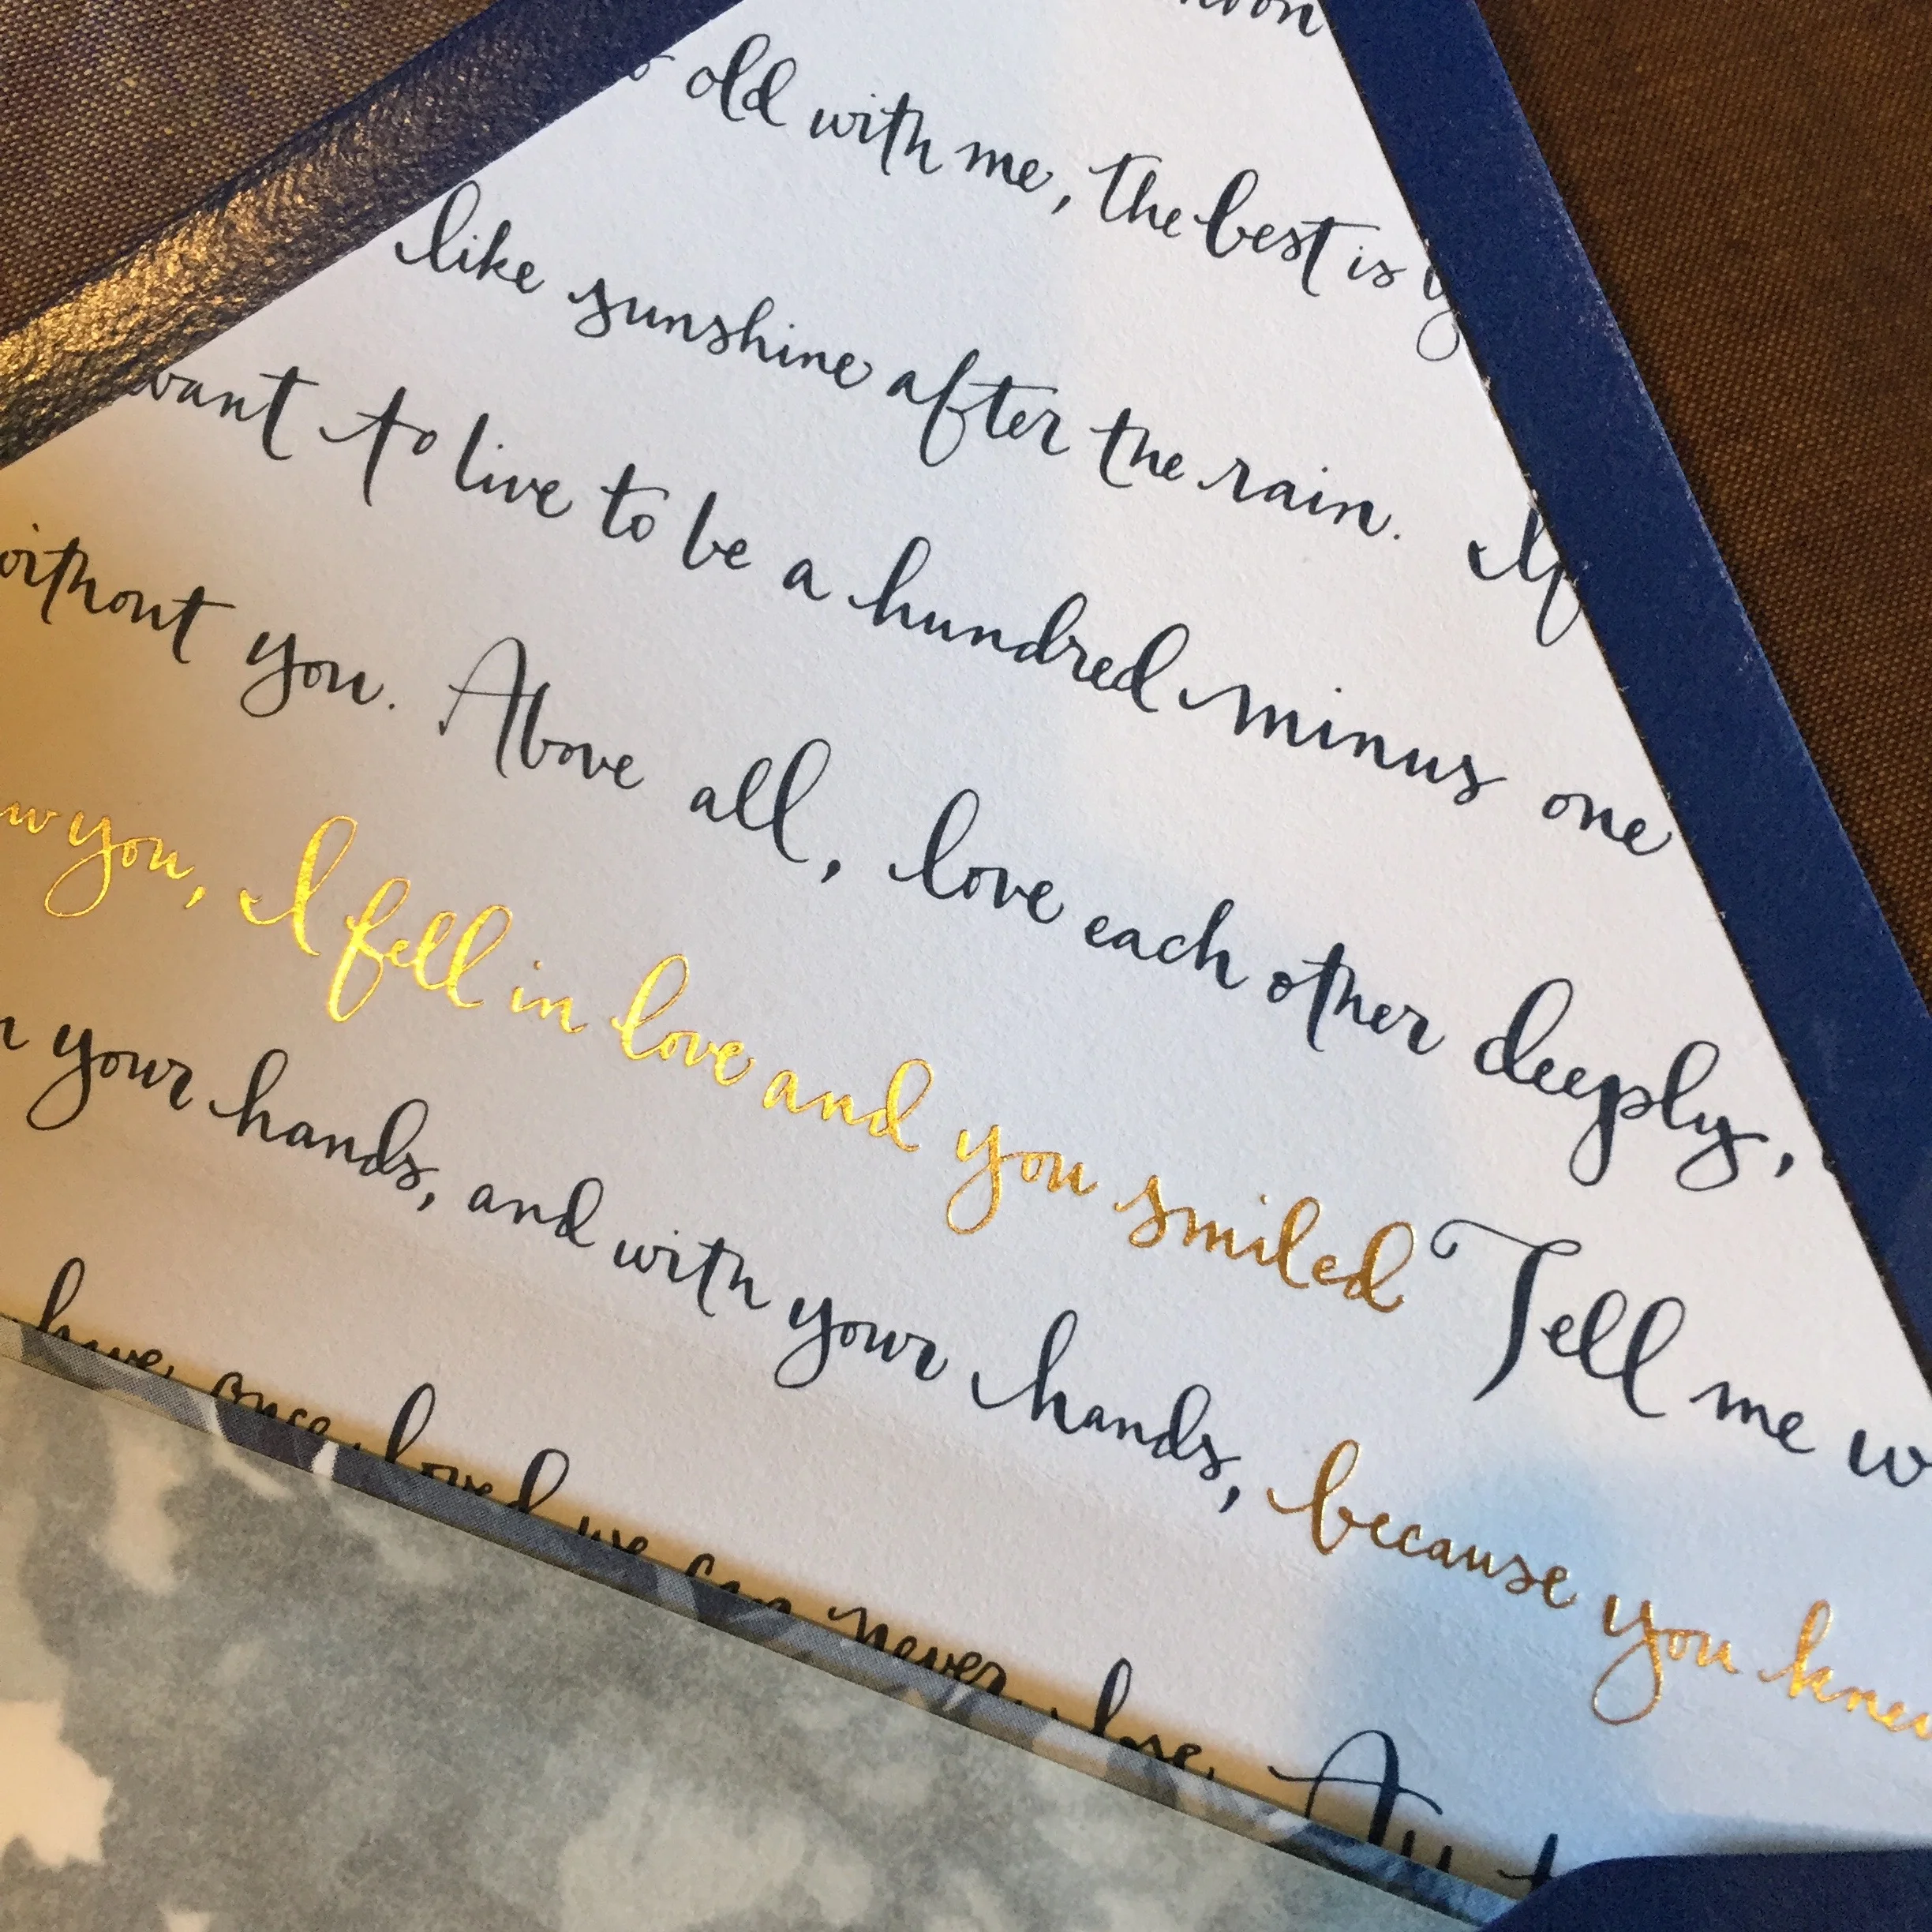 old with me, the best is
like sunshine after the rain. If
want to live to be a hundred minus one
without you. Above all, love each other deeply,
you, I fell in love and you smiled Tell me w
your hands, and with your hands, because you knew
have once loved we can never lose.